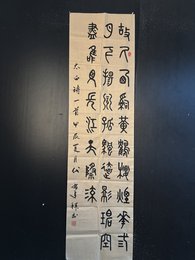 故人西辭黃鶴樓煙華弎
月下揚州孤帆遠影碧空
盡惟見長江天際流
太白詩一首甲辰夏月